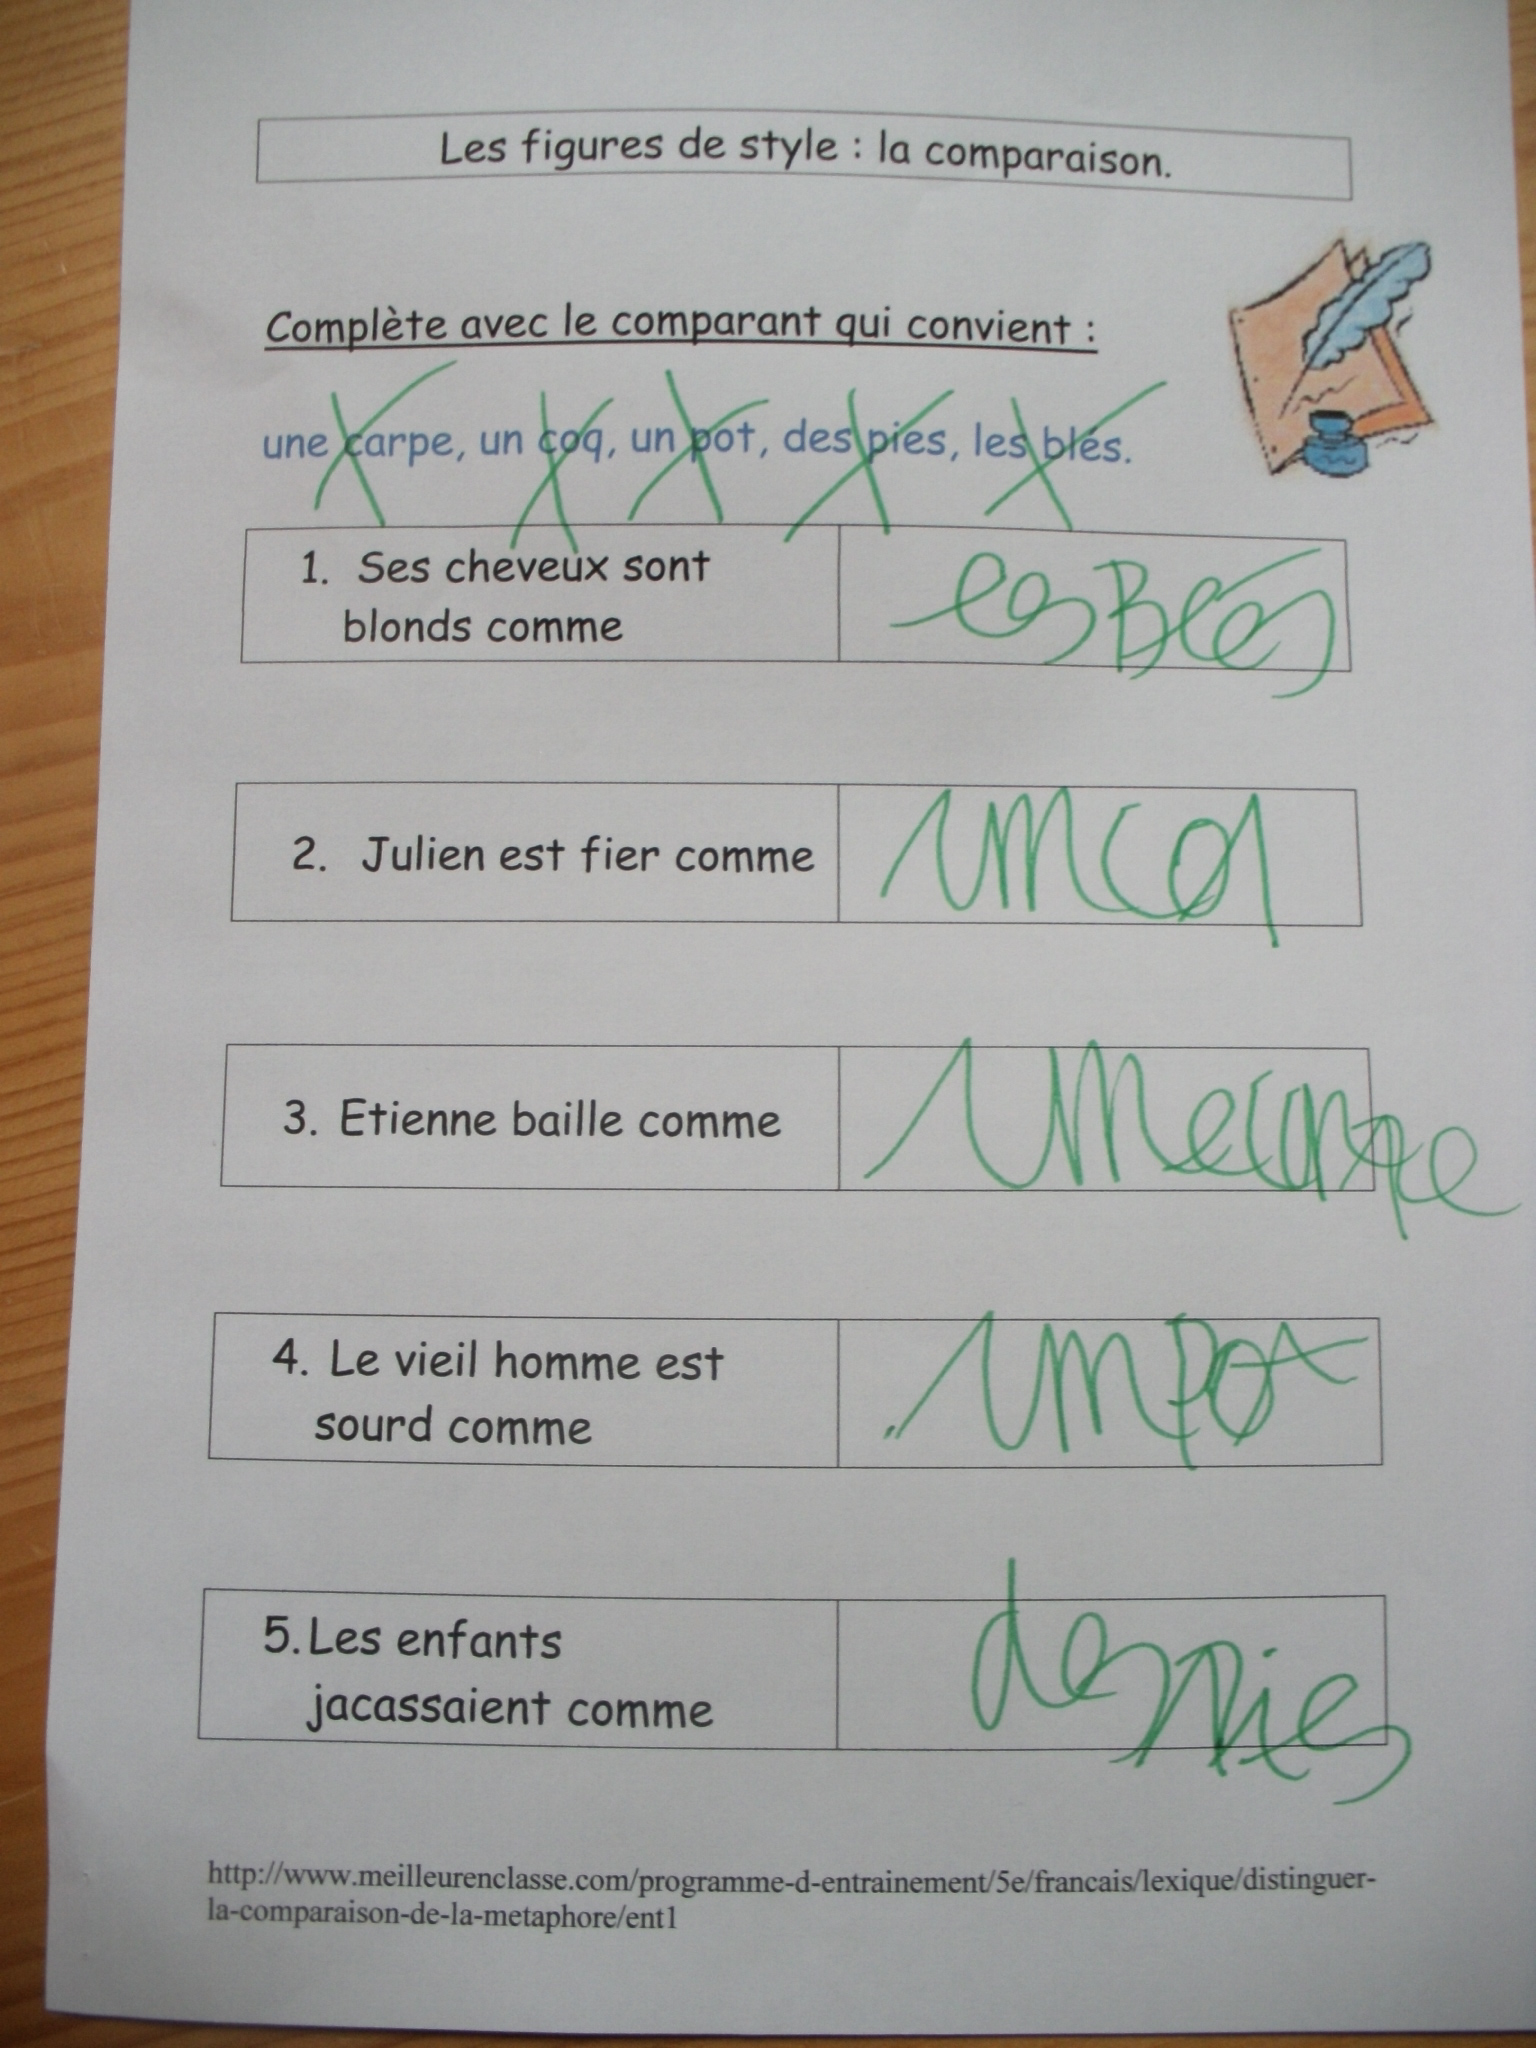 Les figures de style : la comparaison.
Complète avec le comparant qui convient :
une carpe, un coq, un pot, des pies, les blés.
1. Ses cheveux sont
blonds comme
les Blés
2. Julien est fier comme
un coq
3. Etienne baille comme
une carpe
4. Le vieil homme est
sourd comme
un pot
5. Les enfants
jacassaient comme
des pies
http://www.meilleurenclasse.com/programme-d-entrainement/5e/francais/lexique/distinguer-
la-comparaison-de-la-metaphore/ent1